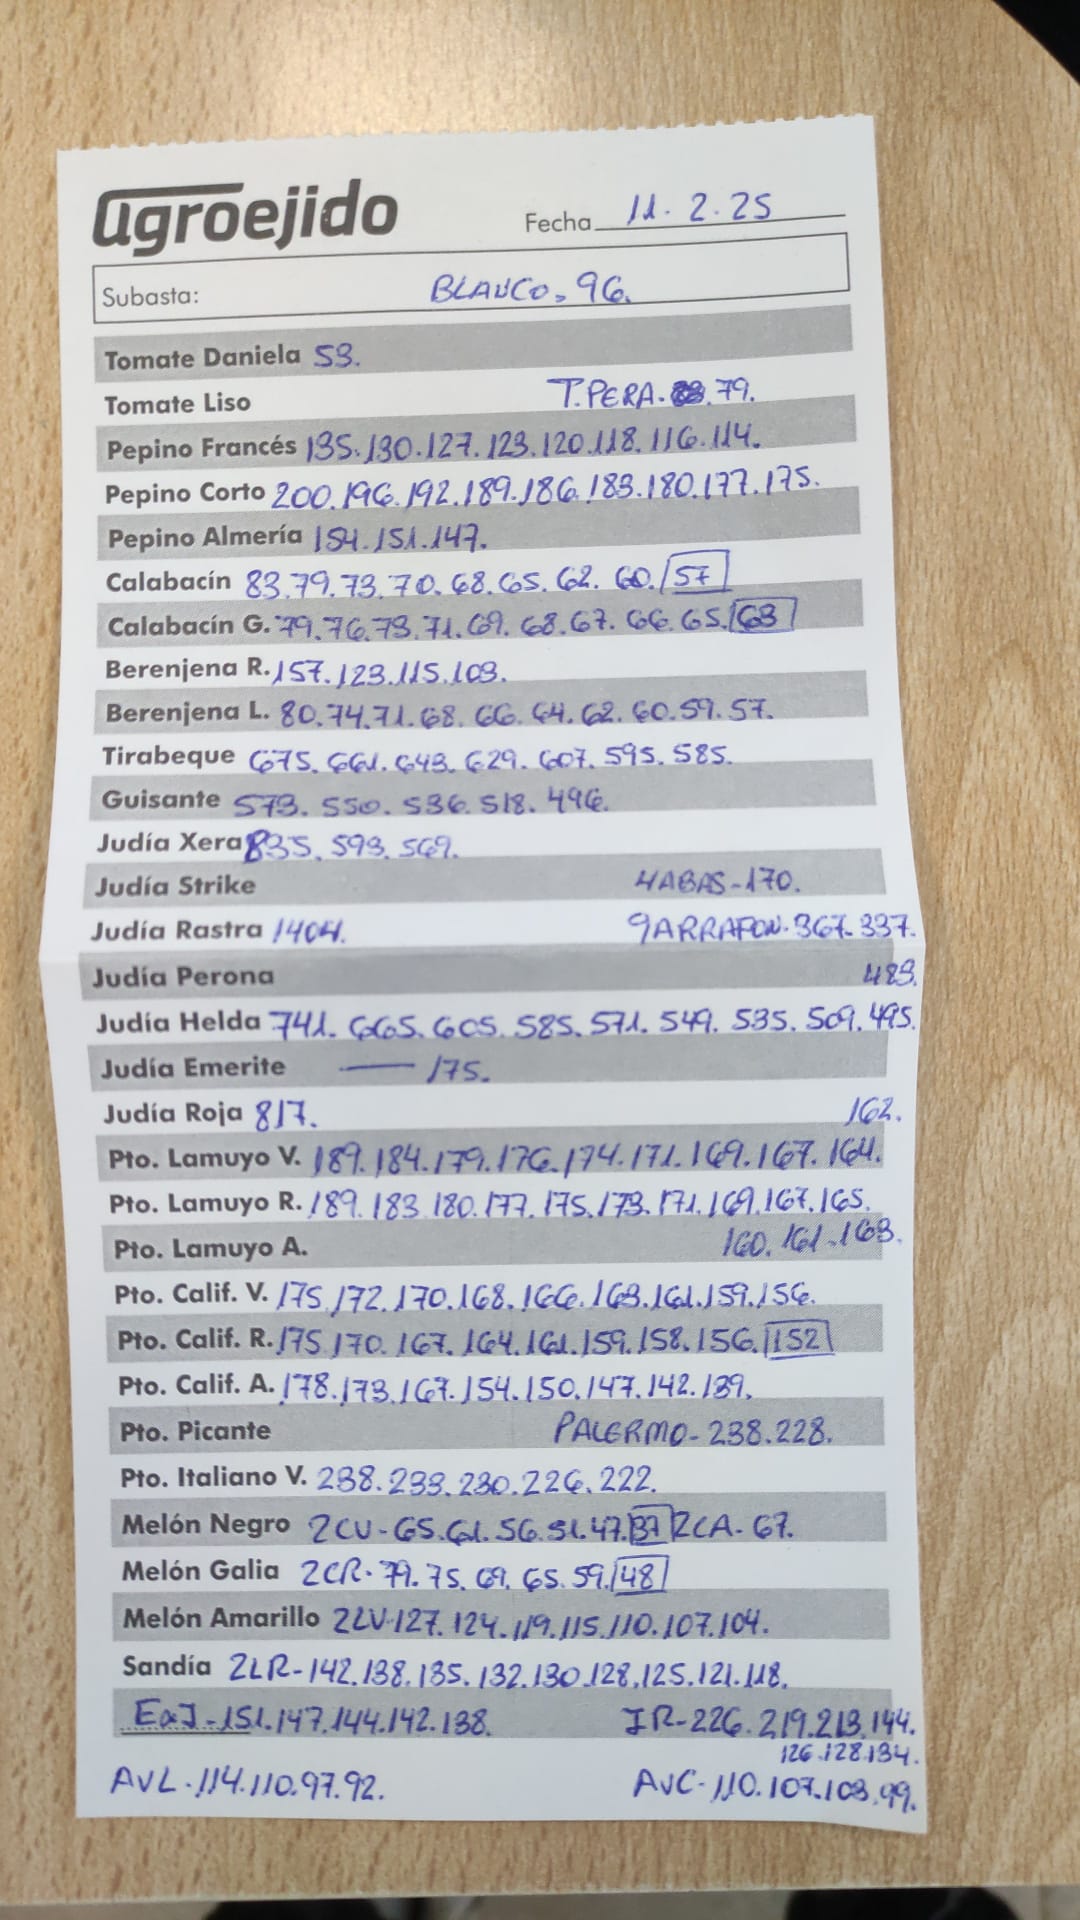 agroejido
Fecha 11.2.25
Subasta: BLANCO. 96.
Tomate Daniela 53.
Tomate Liso T.PERA. 79.
Pepino Francés 135.130.127.123.120.118.116.114.
Pepino Corto 200.196.192.189.186.183.180.177.175.
Pepino Almería 154.151.147.
Calabacín 83.79.73.70.68.65.62.60.57
Calabacín G. 79.76.73.71.69.68.67.66.65.63
Berenjena R. 157.123.115.103.
Berenjena L. 80.74.71.68.66.64.62.60.59.57.
Tirabeque 675.661.643.629.607.595.585.
Guisante 573.550.536.518.496.
Judía Xera 835.593.569.
Judía Strike HABAS-170.
Judía Rastra 1404. GARRAFON.367.337.
Judía Perona 483.
Judía Helda 741.665.605.585.571.549.535.509.495.
Judía Emerite — 175.
Judía Roja 817. 162.
Pto. Lamuyo V. 189.184.179.176.174.171.169.167.164.
Pto. Lamuyo R. 189.183.180.177.175.173.171.169.167.165.
Pto. Lamuyo A. 160.161.163.
Pto. Calif. V. 175.172.170.168.166.163.161.159.156.
Pto. Calif. R. 175.170.167.164.161.159.158.156.152
Pto. Calif. A. 178.173.167.154.150.147.142.139.
Pto. Picante PALERMO-238.228.
Pto. Italiano V. 238.233.230.226.222.
Melón Negro 2CU-65.61.56.51.47.37 2CA-67.
Melón Galia 2CR-79.75.69.65.59.48
Melón Amarillo 2LV-127.124.119.115.110.107.104.
Sandía 2LR-142.138.135.132.130.128.125.121.118.
ExJ-151.147.144.142.138. JR-226.219.213.144.
126.128.134.
AVL-114.110.97.92. AVC-110.107.103.99.